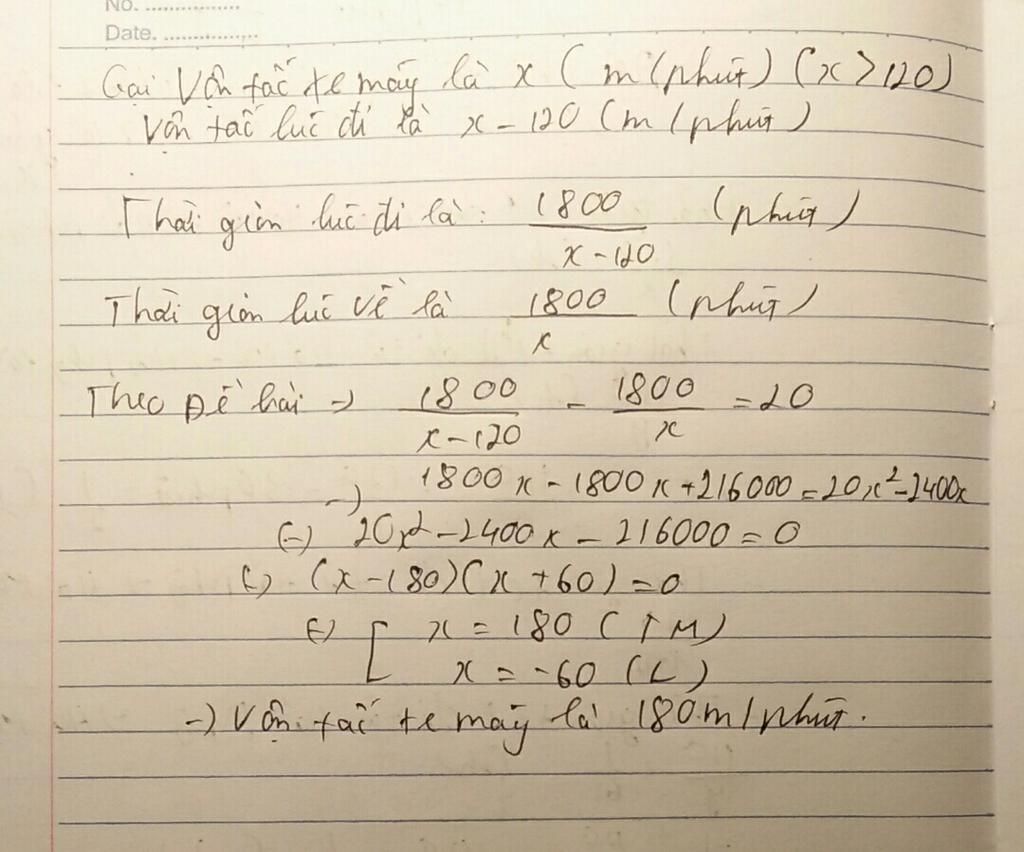 No. ................
Date. ................
Gọi Vận tốc xe máy là x ( m/phút) (x > 120)
Vận tốc lúc đi là x - 120 (m/phút)
Thời gian lúc đi là: 1800/(x - 120) (phút)
Thời gian lúc về là 1800/x (phút)
Theo Đề bài → 1800/(x - 120) - 1800/x = 20
→ 1800x - 1800x + 216000 = 20x² - 2400x
(=) 20x² - 2400x - 216000 = 0
(=) (x - 180)(x + 60) = 0
(=) [ x = 180 (TM)
x = -60 (L)
→ Vận tốc xe máy là 180m/phút.